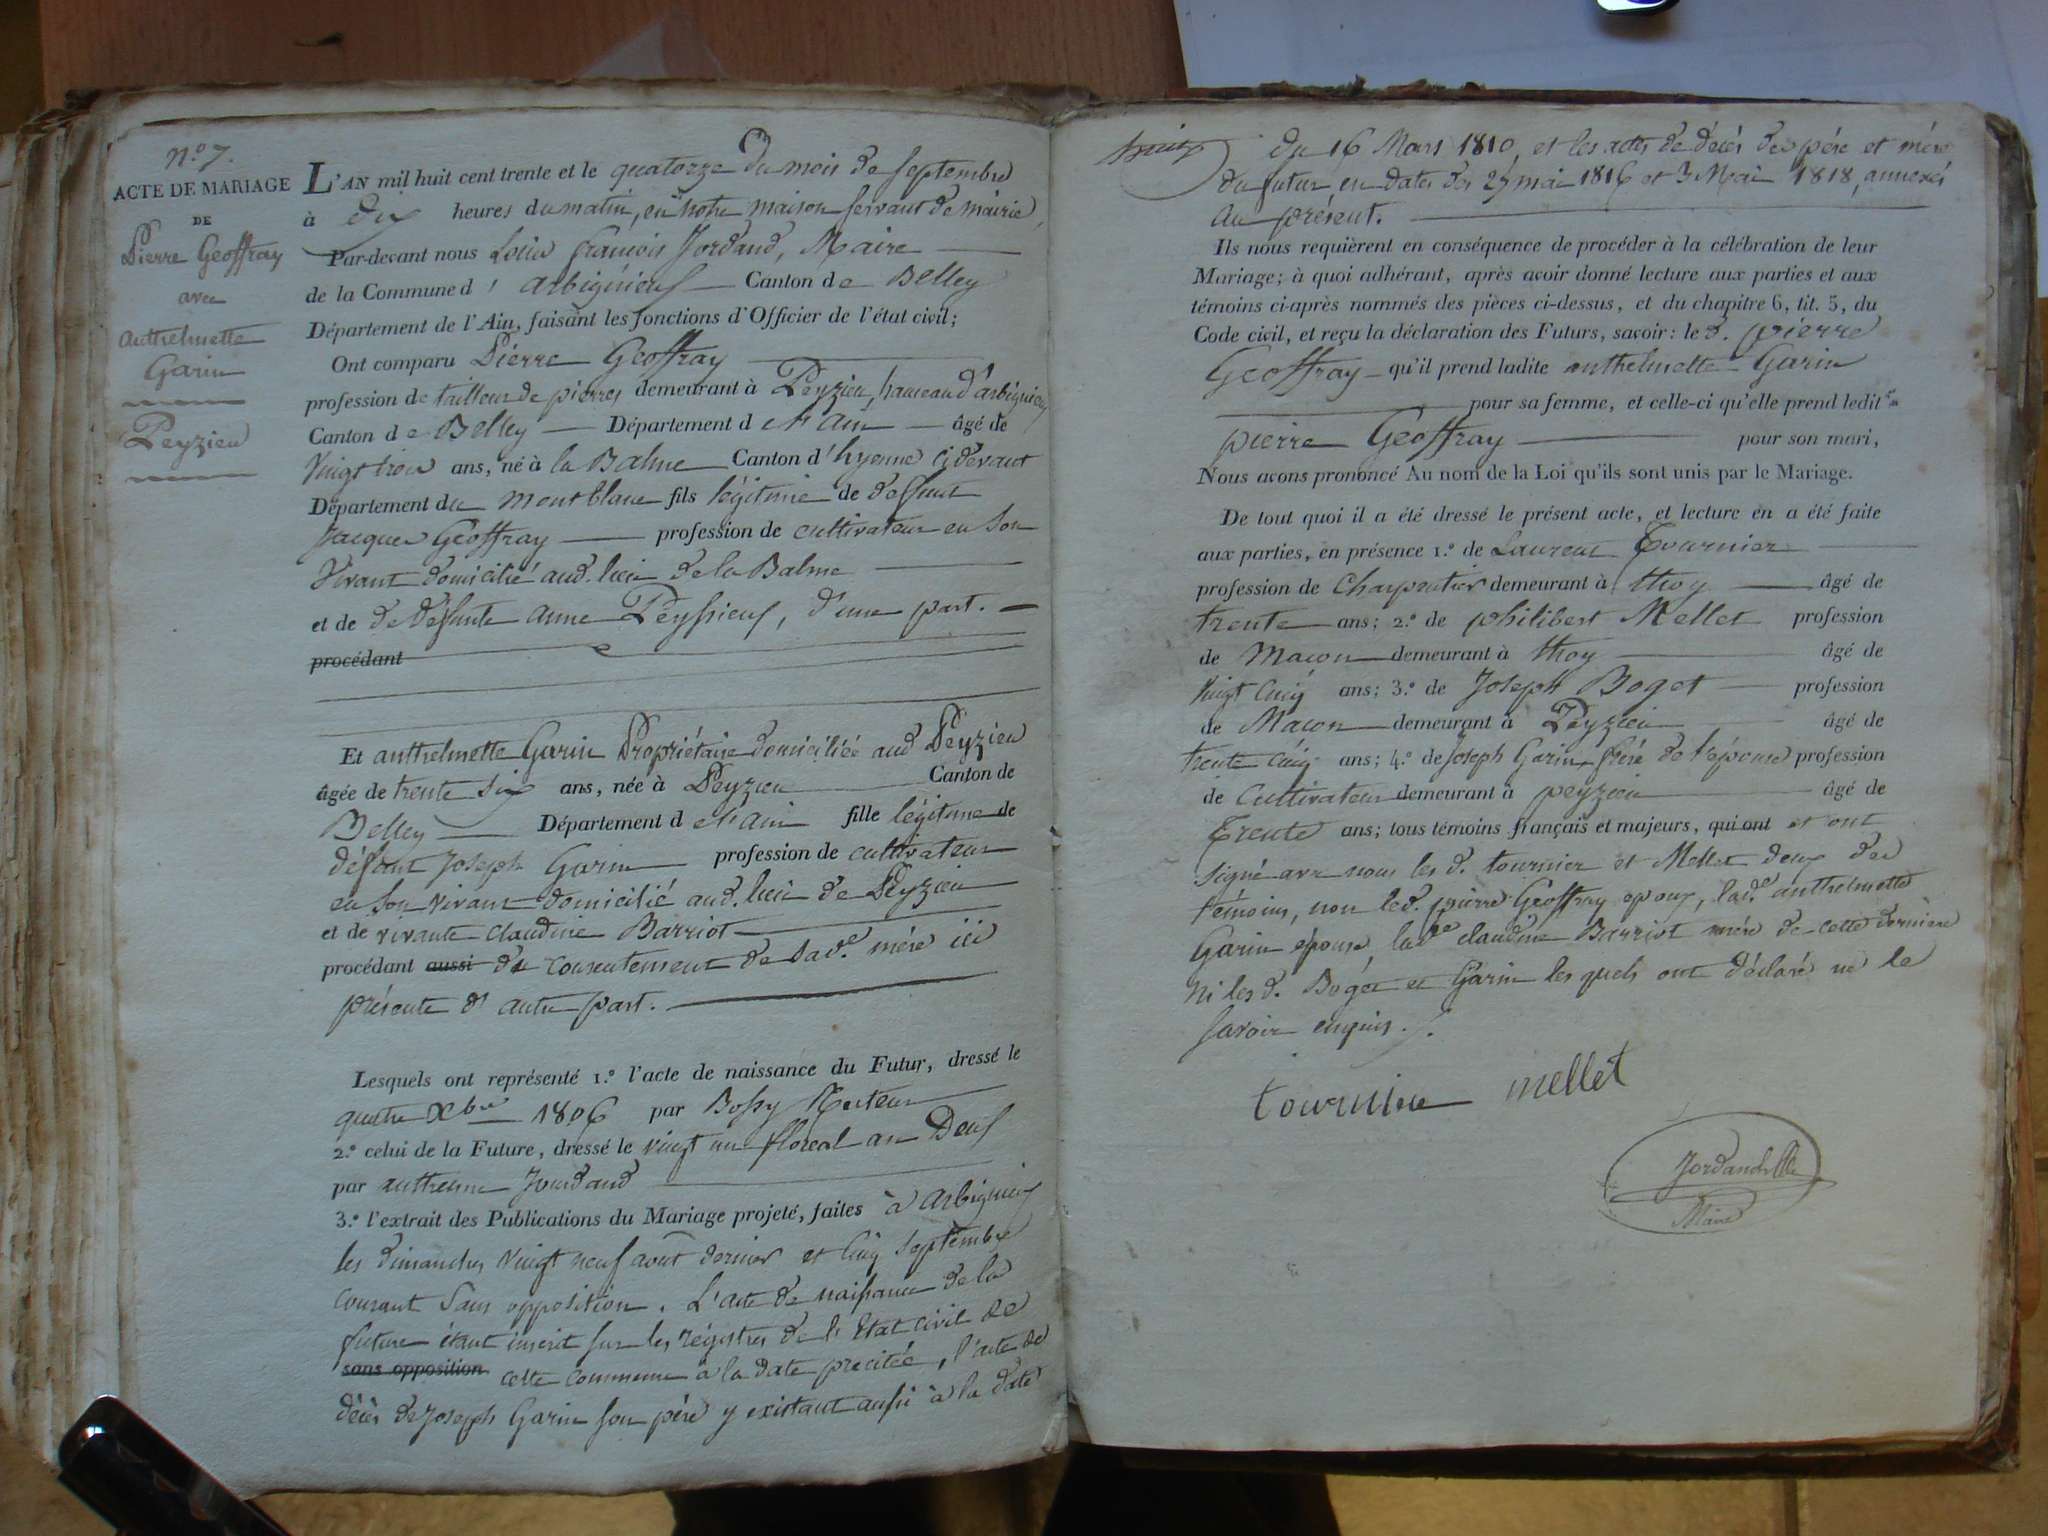 N.o 7.
ACTE DE MARIAGE
DE
Pierre Geoffray
avec
Anthelmette
Garin
Peyzieu
L'AN mil huit cent trente et le quatorze du mois de septembre
à dix heures du matin, en notre maison servant de mairie,
Par-devant nous Louis françois Jordand, Maire
de la Commune d'arbignieuf Canton de Belley
Département de l'Ain, faisant les fonctions d'Officier de l'état civil;
Ont comparu Pierre Geoffray
profession de tailleur de pierres demeurant à Peyzieu, hameau d'arbignieu
Canton de Belley Département de l'ain âgé de
vingt trois ans, né à la Balme Canton d'hyenne cidevant
Département du montblanc fils légitime de defunt
Jacques Geoffray profession de cultivateur en son
vivant domicilié aud. lieu de la Balme
et de defunte anne Peyssieuf, d'une part.
procédant
Et anthelmette Garin Propriétaire domiciliée aud Peyzieu
âgée de trente six ans, née à Peyzieu Canton de
Belley Département de l'ain fille légitime de
défunt Joseph Garin profession de cultivateur
en son vivant domicilié aud. lieu de Peyzieu
et de vivante claudine Barriot
procédant aussi du consentement de sad.e mére ici
présente d'autre part.
Lesquels ont représenté 1.o l'acte de naissance du Futur, dressé le
quatre Xbre 1806 par Bossy Recteur
2.o celui de la Future, dressé le vingt un floreal an Deuf
par anthelme Jourdand
3.o l'extrait des Publications du Mariage projeté, faites à arbignieuf
les dimanches vingt neuf août dernier et cinq septembre
courant sans opposition. L'acte de naissance de la
future étant inscrit sur les régistres de l'Etat civil de
sans opposition cette commune à la date precitée, l'acte de
décès de Joseph Garin son pére y existant aussi à la date
huit
du 16 Mars 1810, et les actes de décès des pére et mére
du futur en dates des 27 mai 1816 et 3 Mai 1818, annexés
au présent.
Ils nous requièrent en conséquence de procéder à la célébration de leur
Mariage; à quoi adhérant, après avoir donné lecture aux parties et aux
témoins ci-après nommés des pièces ci-dessus, et du chapitre 6, tit. 5, du
Code civil, et reçu la déclaration des Futurs, savoir: le d. pierre
Geoffray qu'il prend ladite anthelmette Garin
pour sa femme, et celle-ci qu'elle prend ledit
pierre Geoffray pour son mari,
Nous avons prononcé Au nom de la Loi qu'ils sont unis par le Mariage.
De tout quoi il a été dressé le présent acte, et lecture en a été faite
aux parties, en présence 1.o de Laurent Tournier
profession de charpentier demeurant à thoy âgé de
trente ans; 2.o de philibert Mellet profession
de macon demeurant à thoy âgé de
vingt cinq ans; 3.o de Joseph Boget profession
de Macon demeurant à Peyzieu âgé de
trente cinq ans; 4.o de Joseph Garin frére de l'épouse profession
de Cultivateur demeurant à peyzieu âgé de
Trente ans; tous témoins français et majeurs, qui ont et ont
signé avec nous les d. tournier et Mellet deux des
témoins, non led. pierre Geoffray epoux, lad.e anthelmette
Garin épouse, lad.e claudine Barriot mére de cette derniére
ni les d. Boget et Garin lesquels ont déclaré ne le
savoir enquis.
tournier mellet
Jordand
Maire